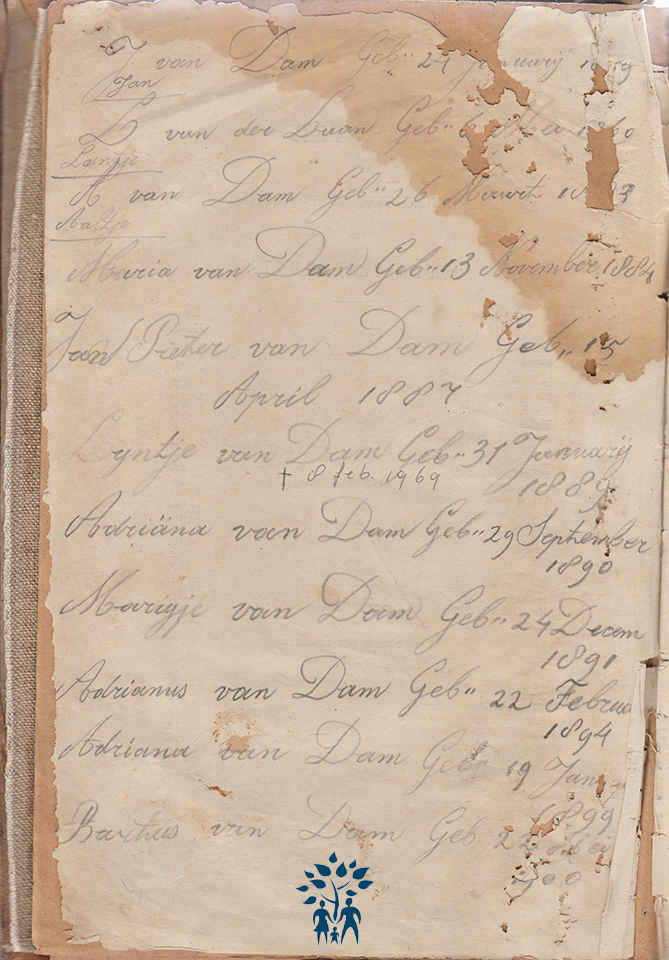 J van Dam Geb" 24 Januarij
Jan
L van der Laan Geb" 6
Lamtje
A van Dam Geb" 26 Maart
Aaltje
Maria van Dam Geb" 13 November 1884
Jan Pieter van Dam Geb" 15
April 1887
Lyntje van Dam Geb" 31 Januarij
† 8 feb. 1969
1889
Adriäna van Dam Geb" 29 September
1890
Marigje van Dam Geb" 24 Decem
1891
Adrianus van Dam Geb" 22 Februa
1894
Adriana van Dam Geb" 19 Jan
1899
Bartus van Dam Geb 22
1900